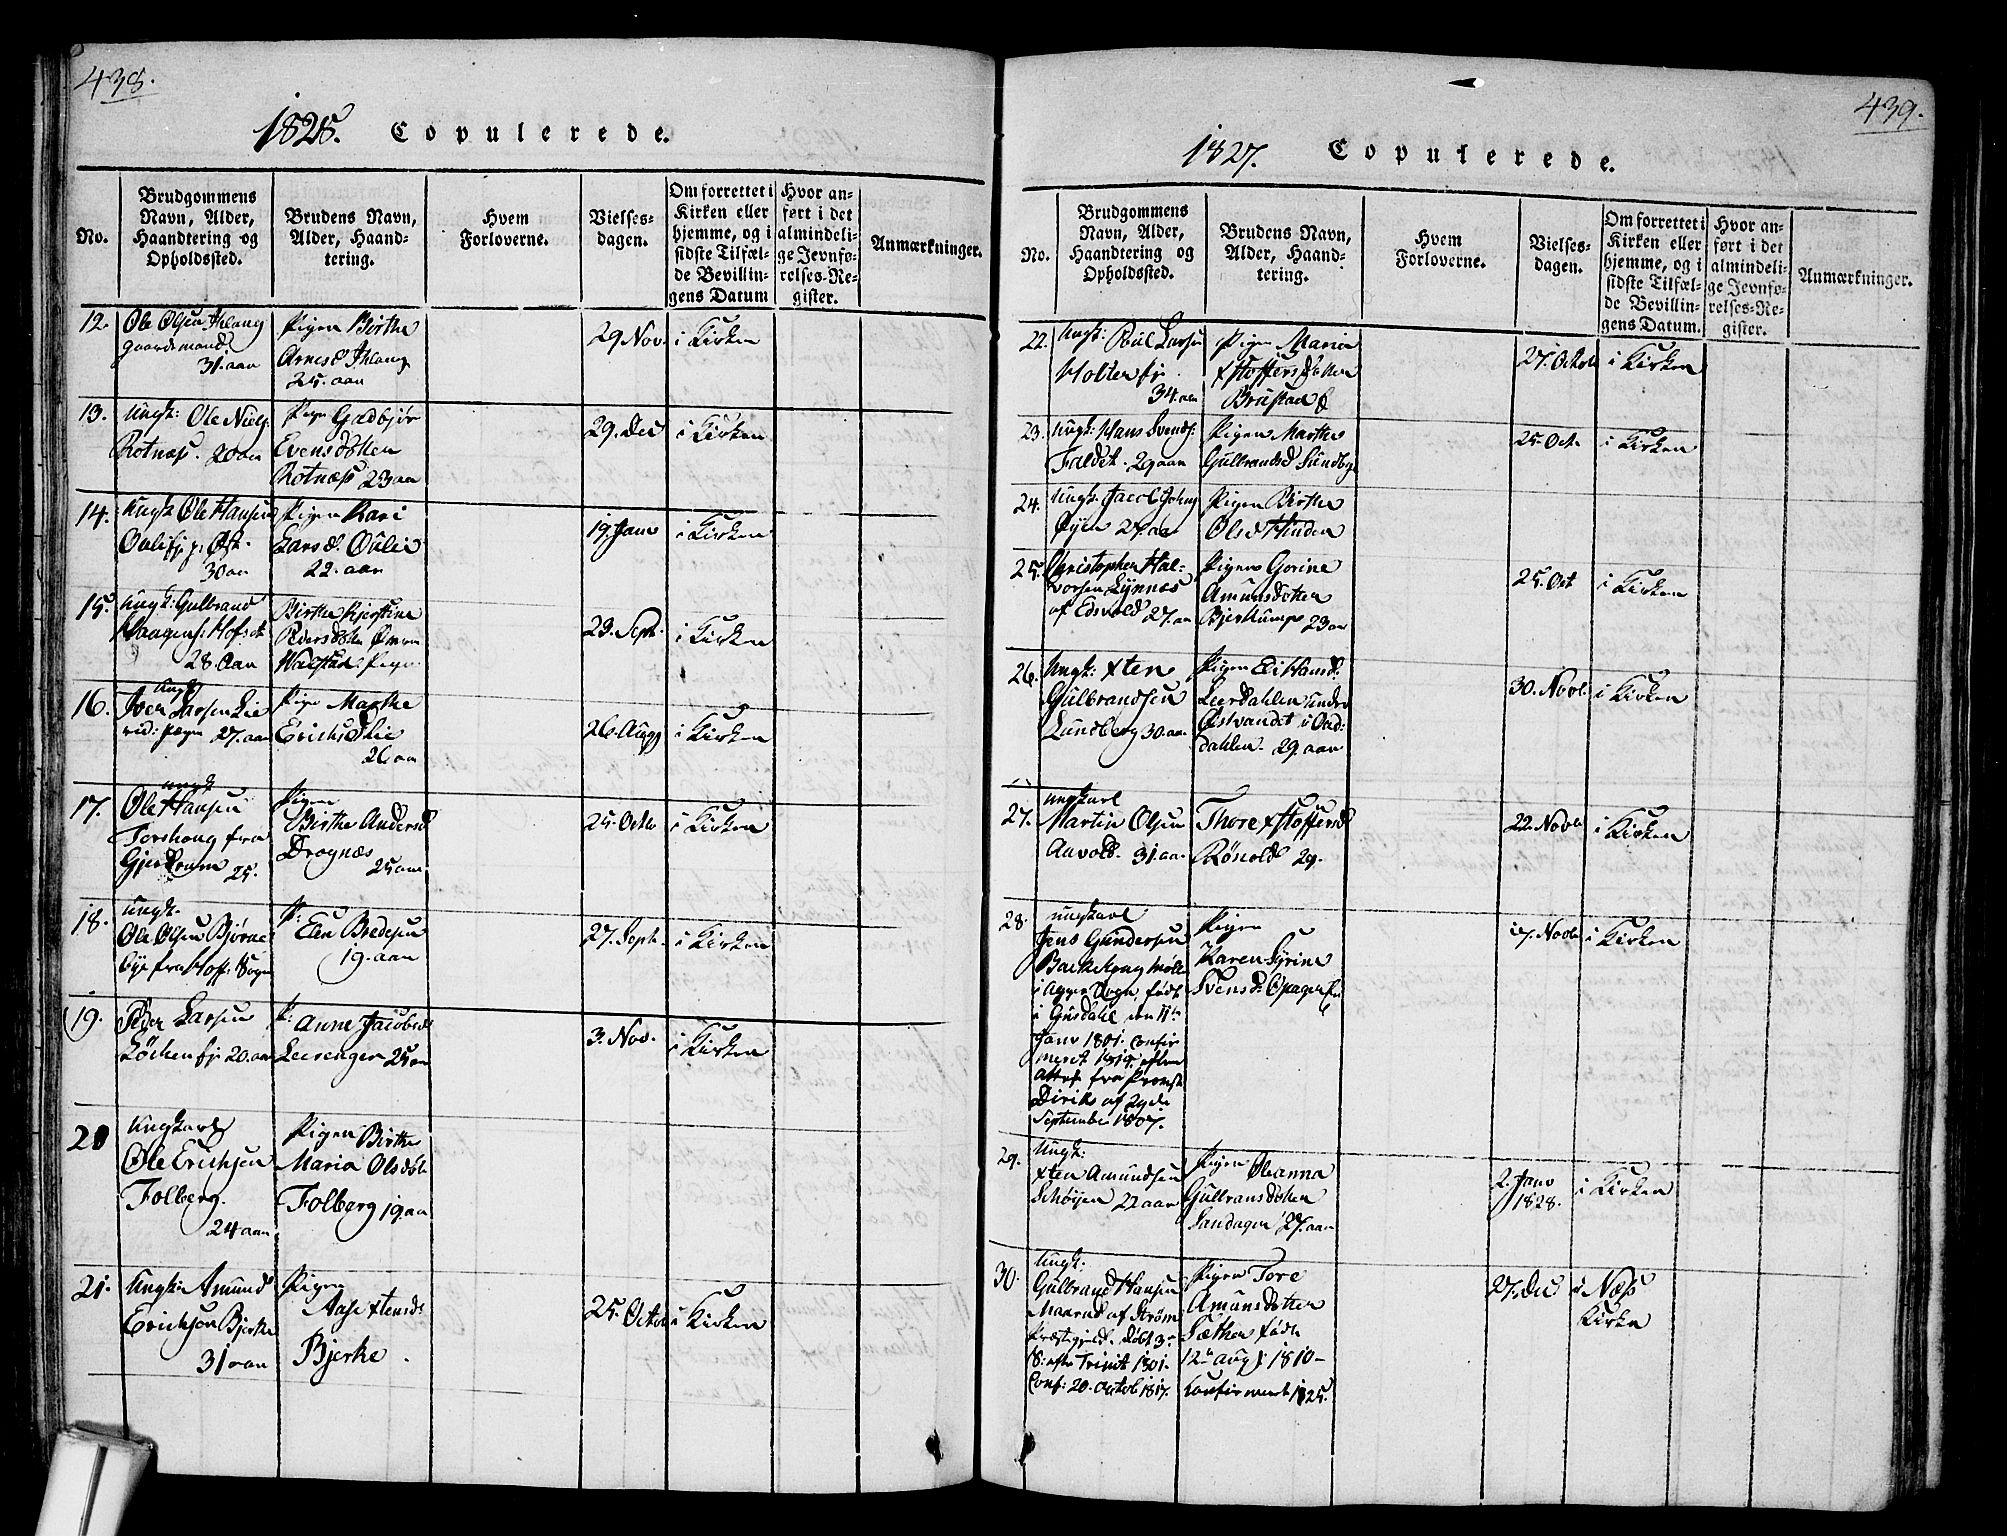 438.
1828. Copulerede.
No.
Brudgommens
Navn, Alder,
Haandtering og
Opholdssted.
Brudens Navn,
Alder, Haand-
tering.
Hvem
Forloverne.
Vielses-
dagen.
Om forrettet i
Kirken eller
hjemme, og i
sidste Tilfæl-
de Bevillin-
gens Datum
Hvor an-
ført i det
almindeli-
ge Jevnfø-
relses-Re-
gister.
Anmærkninger.
12.
Ole Olsen Ihlang
gaardmand
31. aar
Pigen Birthe
Arnesd Ihlang
25. aar
29 Nov.
i Kirken
13.
Ungk: Ole Niels
Rotnæss. 20 aar
Pigen Gudbjør
Evensdotter
Rotnæss 23 aar
29. Dec
i Kirken
14.
Ungk Ole Hansen
30 aar
Pigen Kari
Larsd. Oulie
22. aar
19. Janv
i Kirken
15.
Ungk: Gulbrand
Haagens: Hofset
28. Aar
Birthe Kjerstine
Pigen
23. Septr.
i Kirken
16.
Ungk
Iver Larsen Lie
27. aar
Pige Marthe
Erichsd Lie
26 aar
26. Augg
i Kirken
17.
ungk
Ole Hansen
Torshoug fra
Gjerdrum 25.
Pigen
Birthe Andersd
Drognæs
25 aar
25. Octbr
i Kirken
18.
Ungk.
Ole Olsen Bjørne
bye fra Hoff: Sogn
P:
Elen Bredesen
19. aar
27. Septr.
i Kirken
19.
Peder Larsen
Løchen ej 20. aar
P:
Anne Jacobsd
Leirenger 25 aar
3. Nov.
i Kirken
20
Ungkarl
Ole Erichsen
Folberg.
24 aar
Pigen Birthe
Maria Olsdotr
Folberg 19. aar
21.
Ungk: Amund
Erichsen Bjerke
31 aar
Pigen
Aase xtensd:
Bjerke.
25. Octob
i Kirken
439.
1827. Copulerede.
No.
Brudgommens
Navn, Alder,
Haandtering og
Opholdssted.
Brudens Navn,
Alder, Haand-
tering.
Hvem
Forloverne.
Vielses-
dagen.
Om forrettet i
Kirken eller
hjemme, og i
sidste Tilfæl-
de Bevillin-
gens Datum.
Hvor an-
ført i det
almindeli-
ge Jevnfø-
relses-Re-
gister.
Anmærkninger.
22.
Ungk: Poul Larsen
Holter ej.
34. aar
Pigen Maria
xstoffersdotter
Brustad
27. Octob
i Kirken
23.
Ungk: Hans Svends:
Faldet. 29 aar
Pigen Marthe
Gulbrandsd Sundbye
25 Oct.
i Kirken
24.
Ungk. Jacob Johns
Øyen 27. aar
Pigen Birthe
Olsd Hinden
25.
Christopher Hal-
vorsen Lynnæs
af Edsvold 27. aar
Pigen Gorine
Amunsdotter
23 aar
25. Oct
i Kirken
26.
Ungk: xten
Gulbrandsen
Lundberg 30. aar
Pigen Eli Hansd:
Leerdahlen under
Østvandet i Oud-
dahlen. 29. aar
30. Novb.
i Kirken
27.
ungkarl
Martin Olsen
Aavold. 31. aar
Thore xstoffersd
Rønold 29.
22. Novb
i Kirken
28.
ungkarl
Jens Gundersen
Bækkehoug
i Agger Sogn, født
i Gusdahl den 11te
Janv 1801. confir
meret 1819. efter
Attest fra Provst
Diriks af 29de
September 1827.
Pigen
Karen Syrine
Svensd: Opager
17. Novb
i Kirken
29.
Ungk:
xten Amundsen
Schøyen 22 aar
Pigen Oleanna
Gulbransdotter
Sandager 27. aar
2. Janv
1828.
i Kirken
30.
Ungk:
Gulbrand Hansen
Maarud af Strøm
Præstegjeld. Døbt
18: efter Trinit 1801.
Conf: 20. Octob 1817.
Pigen Tore
Amunsdotter
Sæther født
12te aug: 1810-
confirmeret 1825.
27. Dec
i Næs
Kirke